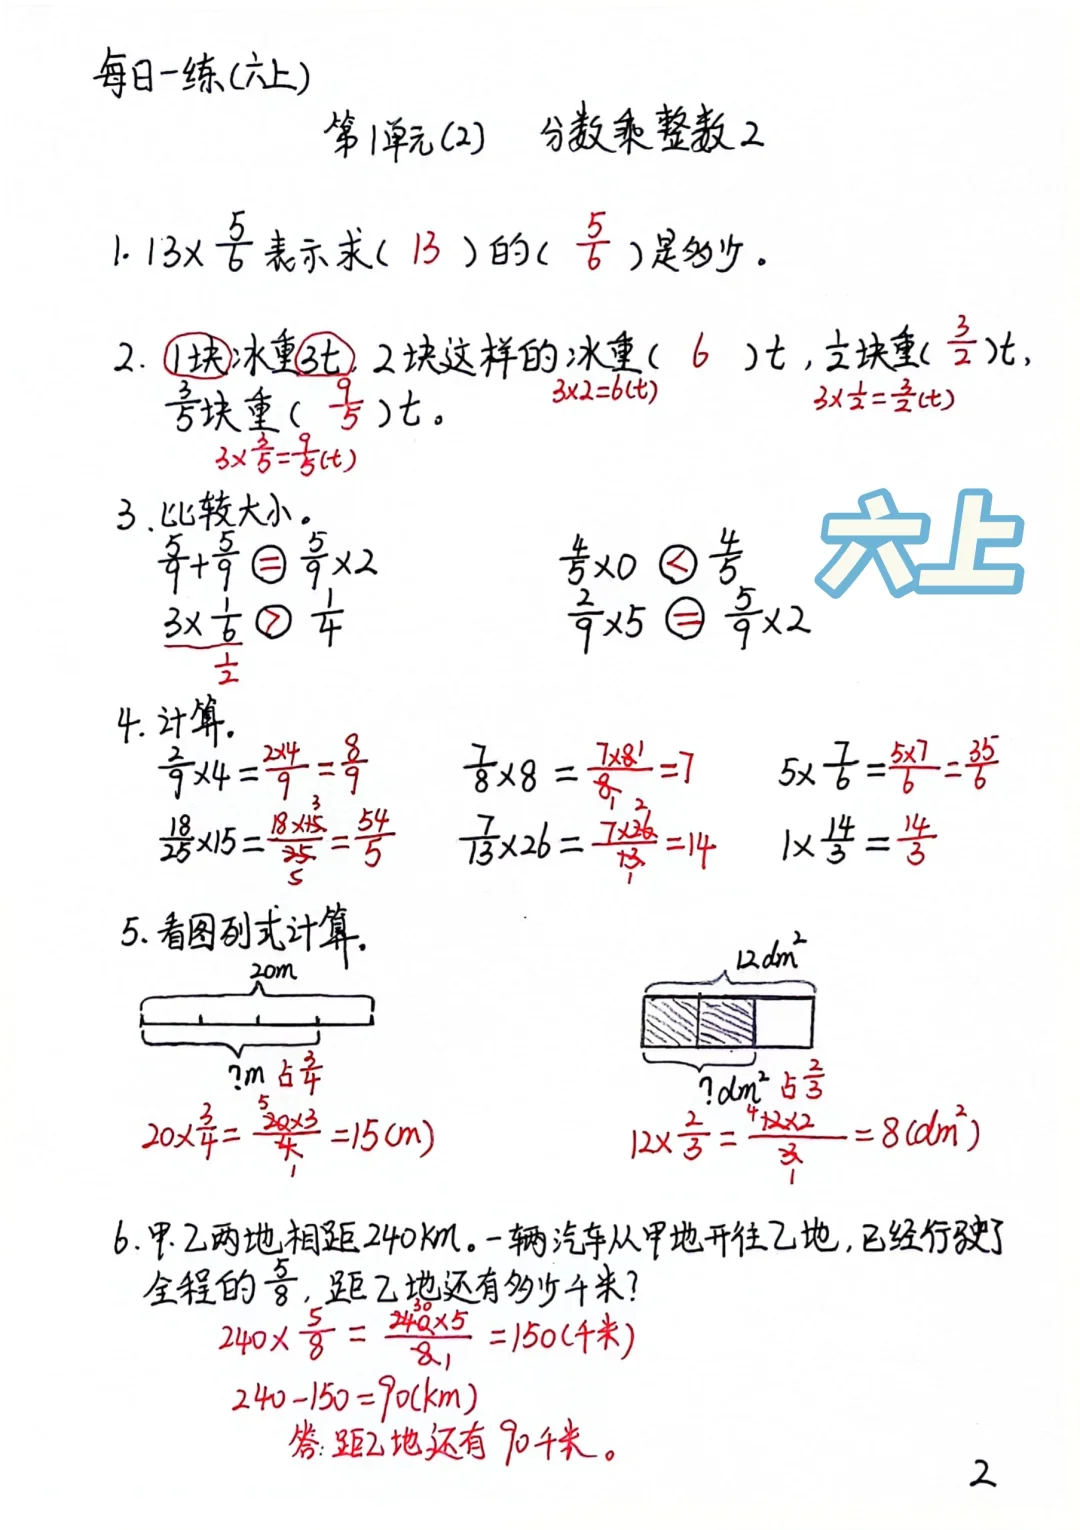 每日一练(六上)
第1单元(2) 分数乘整数2
1. 13×5/6表示求( 13 )的( 5/6 )是多少。
2. 1块冰重3t, 2块这样的冰重( 6 )t, 1/2块重( 3/2 )t,
3×2=6(t) 3×1/2=3/2(t)
3/5块重( 9/5 )t。
3×3/5=9/5(t)
3. 比较大小。
六上
5/9+5/9 = 5/9×2 4/5×0 < 4/5
3×1/6 > 1/4 2/9×5 = 5/9×2
1/2
4. 计算。
2/9×4=2×4/9=8/9 7/8×8=7×8/8=7 5×7/6=5×7/6=35/6
1 1
3 2
18/25×15=18×15/25=54/5 7/13×26=7×26/13=14 1×14/3=14/3
5 1
5. 看图列式计算。
20m 12dm²
?m 占3/4 ?dm² 占2/3
5 4
20×3/4=20×3/4=15(m) 12×2/3=12×2/3=8(dm²)
1 1
6. 甲.乙两地相距240km。一辆汽车从甲地开往乙地,已经行驶了
全程的5/8, 距乙地还有多少千米?
30
240×5/8=240×5/8=150(千米)
1
240-150=90(km)
答:距乙地还有90千米。
2